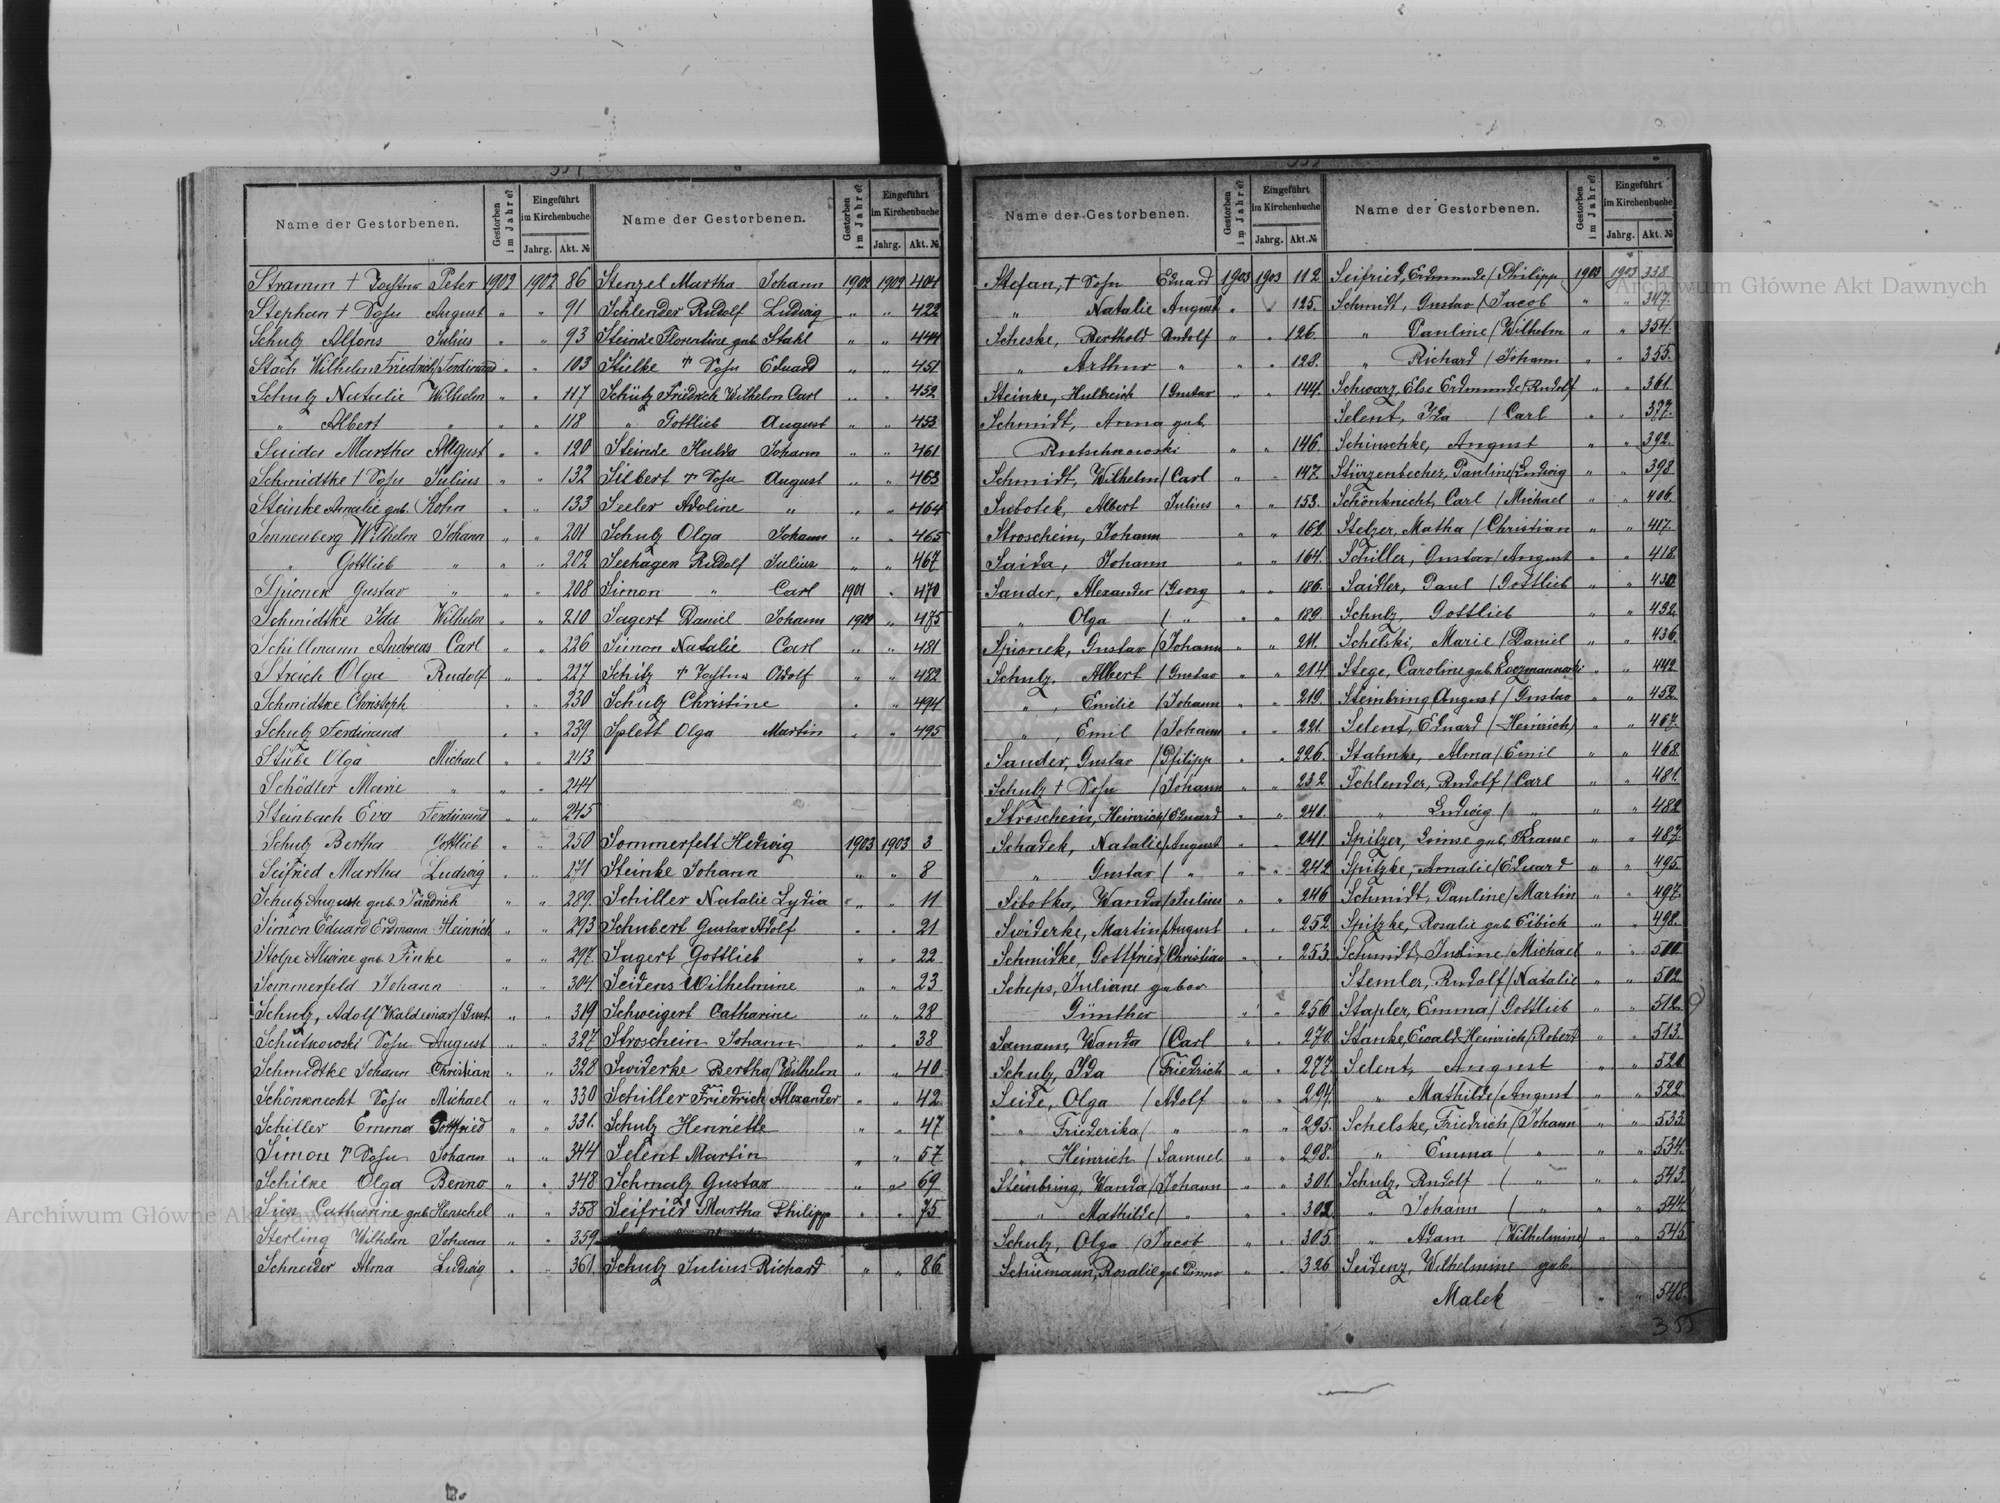 Name der Gestorbenen. Gestorben im Jahre? Eingeführt im Kirchenbuche Jahrg. Akt. №
Stramm † Tochter Peter 1902 1902 86
Stephan † Sohn August " " 91
Schulz Alfons Julius " " 93
Stach Wilhelm Friedrich/Ferdinand " " 103
Schulz Natalie Wilhelm " " 117
" Albert " " " 118
Saida Martha August " " 120
Schmidtke † Sohn Julius " " 132
Steinke Amalie geb. Kohn " " 133
Sonnenberg Wilhelm Johann " " 201
" Gottlieb " " " 202
Spionek Gustav " " " 208
Schmidtke Ida Wilhelm " " 210
Schillmann Andreas Carl " " 226
Streich Olga Rudolf " " 227
Schmidtke Christoph " " 230
Schulz Ferdinand " " 239
Stübe Olga Michael " " 243
Schödler Marie " " " 244
Steinbach Eva Ferdinand " " 245
Schulz Bertha Gottlieb " " 250
Seifried Martha Ludwig " " 271
Schulz Auguste geb. Fandrich " " 289
Simon Eduard Erdmann Heinrich " " 293
Stolpe Alwine geb. Finke " " 297
Sommerfeld Johann " " 304
Schulz, Adolf Waldemar/Gust " " 319
Schutkowski Sohn August " " 327
Schmidtke Johann Christian " " 328
Schönknecht Sohn Michael " " 330
Schiller Emma Gottfried " " 331
Simon † Sohn Johann " " 344
Schilke Olga Benno " " 348
Süss Catharine geb. Henschel " " 358
Sterling Wilhelm Johann " " 359
Schneider Alma Ludwig " " 361
Name der Gestorbenen. Gestorben im Jahre? Eingeführt im Kirchenbuche Jahrg. Akt. №
Stenzel Martha Johann 1902 1902 404
Schlender Rudolf Ludwig " " 422
Steinde Florentine geb. Stahl " " 444
Stielke † Sohn Eduard " " 451
Schütz Friedrich Wilhelm Carl " " 452
" Gottlieb August " " 453
Steinde Hulda Johann " " 461
Silbert † Sohn August " " 463
Seeler Adoline " " " 464
Schulz Olga Johann " " 465
Seehagen Rudolf Julius " " 467
Simon " Carl 1901 " 470
Sagert Daniel Johann 1902 " 475
Simon Natalie Carl " " 481
Schütz † Tochter Adolf " " 482
Schulz Christine " " 494
Splett Olga Martin " " 495
Sommerfelt Hedwig 1903 1903 3
Steinke Johann " " 8
Schiller Natalie Lydia " " 11
Schubert Gustav Adolf " " 21
Sagert Gottlieb " " 22
Seidens Wilhelmine " " 23
Schweigert Catharine " " 28
Stroschein Johann " " 38
Swiderke Bertha/Wilhelm " " 40
Schiller Friedrich/Alexander " " 42
Schulz Henriette " " 47
Selent Martin " " 57
Schmalz Gustav " " 69
Seifried Martha Philipp " " 75
Schulz Julius Richard " " 86
Name der Gestorbenen. Gestorben im Jahre? Eingeführt im Kirchenbuche Jahrg. Akt. №
Stefan, † Sohn Eduard 1903 1903 112
" Natalie August " " 125.
Scheske, Berthold Rudolf " " 126.
" Arthur " " " 128.
Steinke, Huldreich / Gustav " " 144.
Schmidt, Anna geb.
Rutschkowski " " 146.
Schmidt, Wilhelm / Carl " " 147.
Subotek, Albert Julius " " 153.
Stroschein, Johann " " 162.
Saida, Johann " " 164.
Sander, Alexander / Georg " " 186.
" Olga / " " " 189.
Spionek, Gustav / Johann " " 211.
Schulz, Albert / Gustav " " 214
" , Emilie / Johann " " 219.
" , Emil / Johann " " 221.
Sander, Gustav / Philipp " " 226.
Schulz † Sohn / Johann " " 232
Stroschein, Heinrich / Eduard " " 240.
Schadek, Natalie/August " " 241.
" Gustav / " " " 242
Sobotka, Wanda / Julius " " 246
Swiderke, Martin/August " " 252
Schmidke, Gottfried/Christian " " 253
Scheps, Juliane gebor.
Günther " " 256
Samann, Wanda / Carl " " 270.
Schulz, Ida / Friedrich " " 277.
Seide, Olga / Adolf " " 294.
" Friederika / " " " 295.
" Heinrich / Samuel " " 298.
Steinbring, Wanda/Johann " " 301
" Mathilde / " " " 302.
Schulz, Olga / Jacob " " 305
Schiemann, Rosalie geb. " " 326
Name der Gestorbenen. Gestorben im Jahre? Eingeführt im Kirchenbuche Jahrg. Akt. №
Seifried, Erdmunde / Philipp 1903 1903 338
Schmidt, Gustav / Jacob " " 347.
" Pauline / Wilhelm " " 354.
" Richard / Johann " " 355.
Schwarz, Else Erdmunde/Rudolf " " 361.
Selent, Ida / Carl " " 377.
Schinschke, August " " 392.
Stürzenbecher, Pauline/Ludwig " " 398
Schönknecht, Carl / Michael " " 406.
Stelzer, Matha / Christian " " 417.
Schiller, Gustav / August " " 418.
Saidler, Paul / Gottlieb " " 430
Schulz, Gottlieb " " 432.
Schelski, Marie / Daniel " " 436.
Stege, Caroline geb. " " 442
Steinbring, August / Gustav " " 452.
Selent, Eduard / Heinrich " " 467.
Stahnke, Alma / Emil " " 468.
Schlender, Rudolf / Carl " " 481.
" Ludwig / " " " 482
Spitzer, geb. Krame " " 487.
Spitzke, Amalie / Eduard " " 495.
Schmidt, Pauline / Martin " " 497.
Spitzke, Rosalie geb. Eibich " " 498.
Schmidt, Justine / Michael " " 500.
Stemler, Rudolf / Natalie " " 502.
Stapler, Emma / Gottlieb " " 512.
Stanke, Ewald Heinrich / Robert " " 513.
Selent, August " " 520
" Mathilde / August " " 522.
Schelske, Friedrich / Johann " " 533.
" Emma / " " " 534.
Schulz, Rudolf / " " " 543.
" Johann / " " " 544
" Adam / Wilhelmine " " 545
Seidenz, Wilhelmine geb.
Malek " " 548.
355
Archiwum Główne Akt Dawnych
Archiwum Główne Akt Dawnych